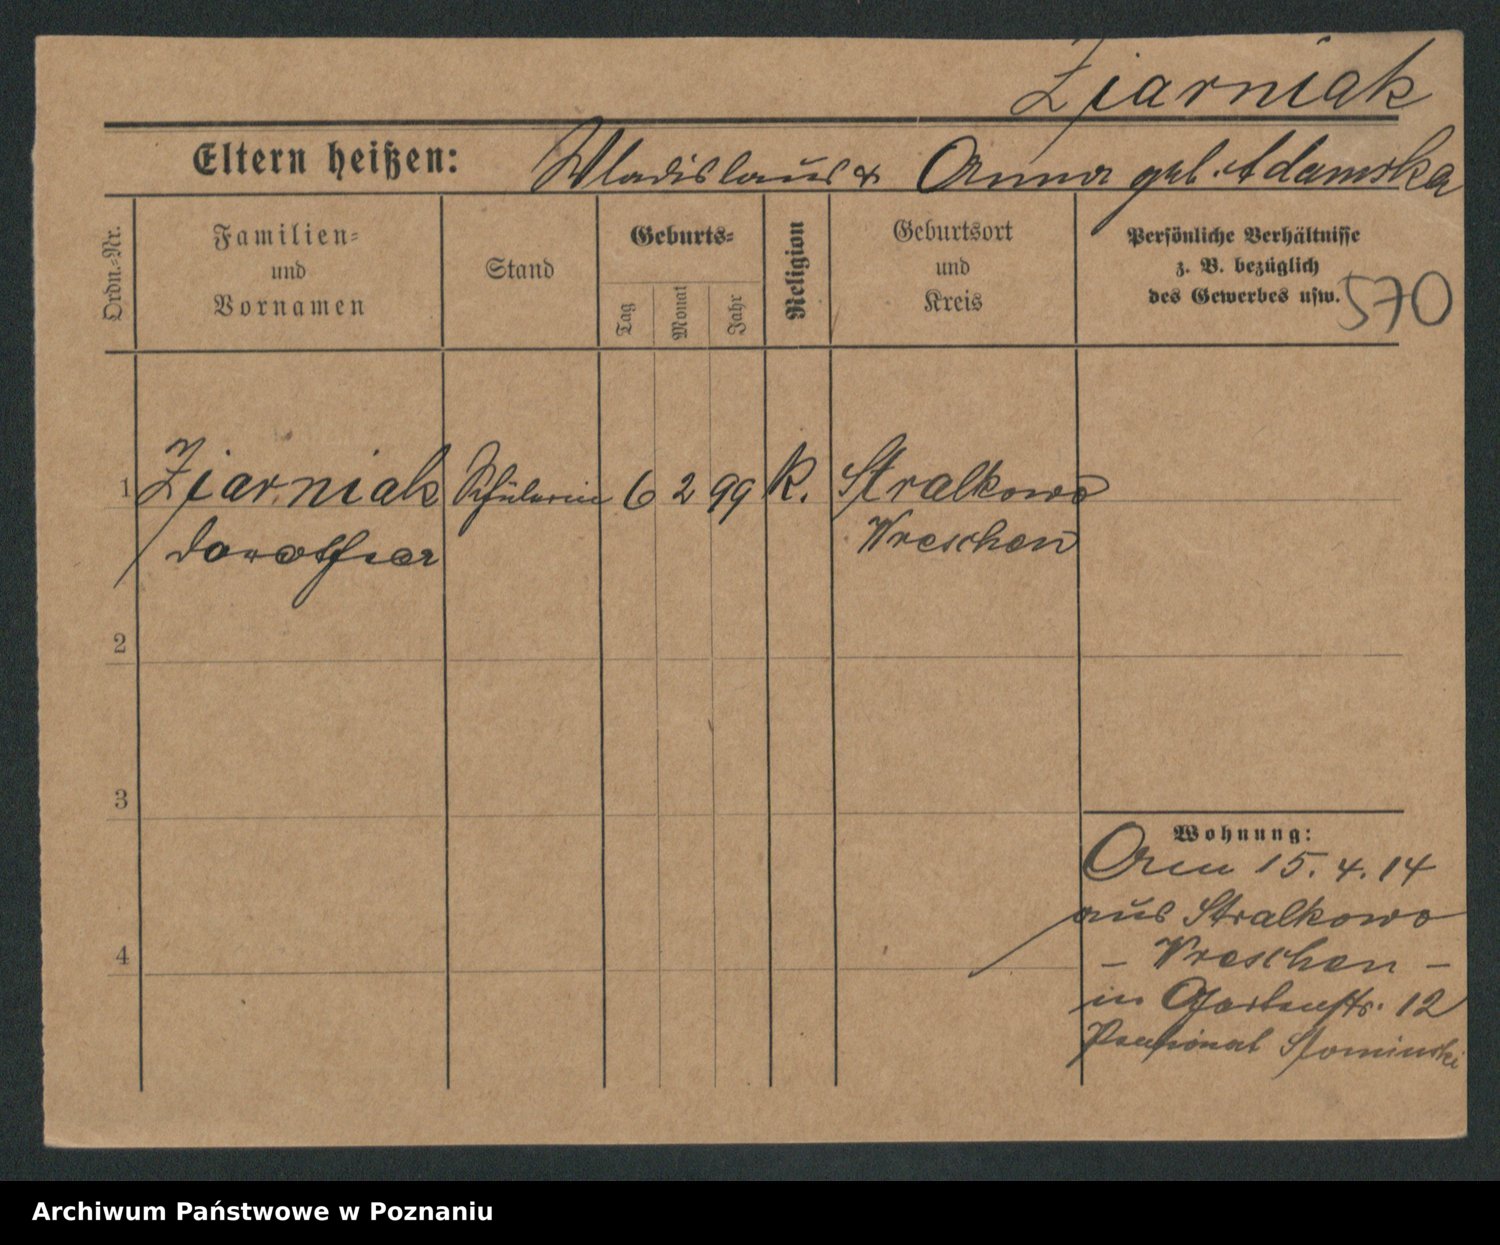 Ziarniak
Eltern heißen: Wladislaus & Anna geb. Adamska
Ordn.-Nr.
Familien-
und
Vornamen
Stand
Geburts-
Tag
Monat
Jahr
Religion
Geburtsort
und
Kreis
Persönliche Verhältnisse
z. B. bezüglich
des Gewerbes usw.
570
1 Ziarniak Schülerin 6 2 99 K. Stralkowo
Dorothea Wreschen
2
3
4
Wohnung:
Am 15.4.14
aus Stralkowo
– Wreschen –
in Gartenstr. 12
Pensionat Slominski
Archiwum Państwowe w Poznaniu